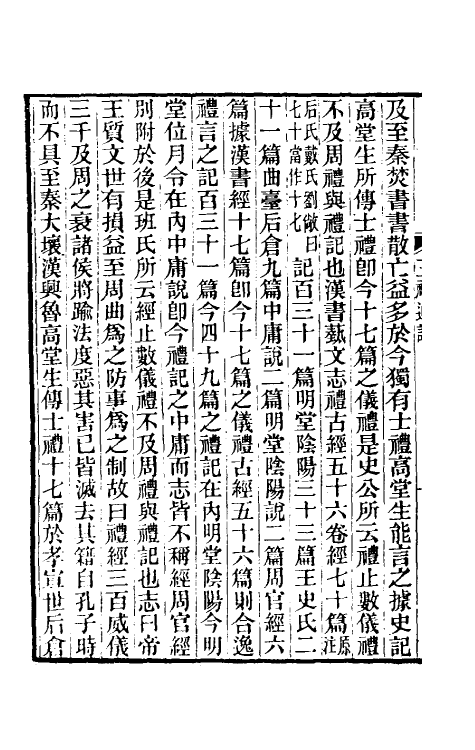 及至秦焚書書散亡益多於今獨有士禮高堂生能言之據史記
高堂生所傳士禮卽今十七篇之儀禮是史公所云禮止數儀禮
不及周禮與禮記也漢書藝文志禮古經五十六卷經七十篇原注
后氏戴氏劉敞曰七十當作十七記百三十一篇明堂陰陽三十三篇王史氏二
十一篇曲臺后倉九篇中庸說二篇明堂陰陽說二篇周官經六
篇據漢書經十七篇卽今十七篇之儀禮古經五十六篇則合逸
禮言之記百三十一篇今四十九篇之禮記在內明堂陰陽今明
堂位月令在內中庸說卽今禮記之中庸而志皆不稱經周官經
別附於後是班氏所云經止數儀禮不及周禮與禮記也志曰帝
王質文世有損益至周曲爲之防事爲之制故曰禮經三百威儀
三千及周之衰諸侯將踰法度惡其害己皆滅去其籍自孔子時
而不具至秦大壞漢興魯高堂生傳士禮十七篇於孝宣世后倉